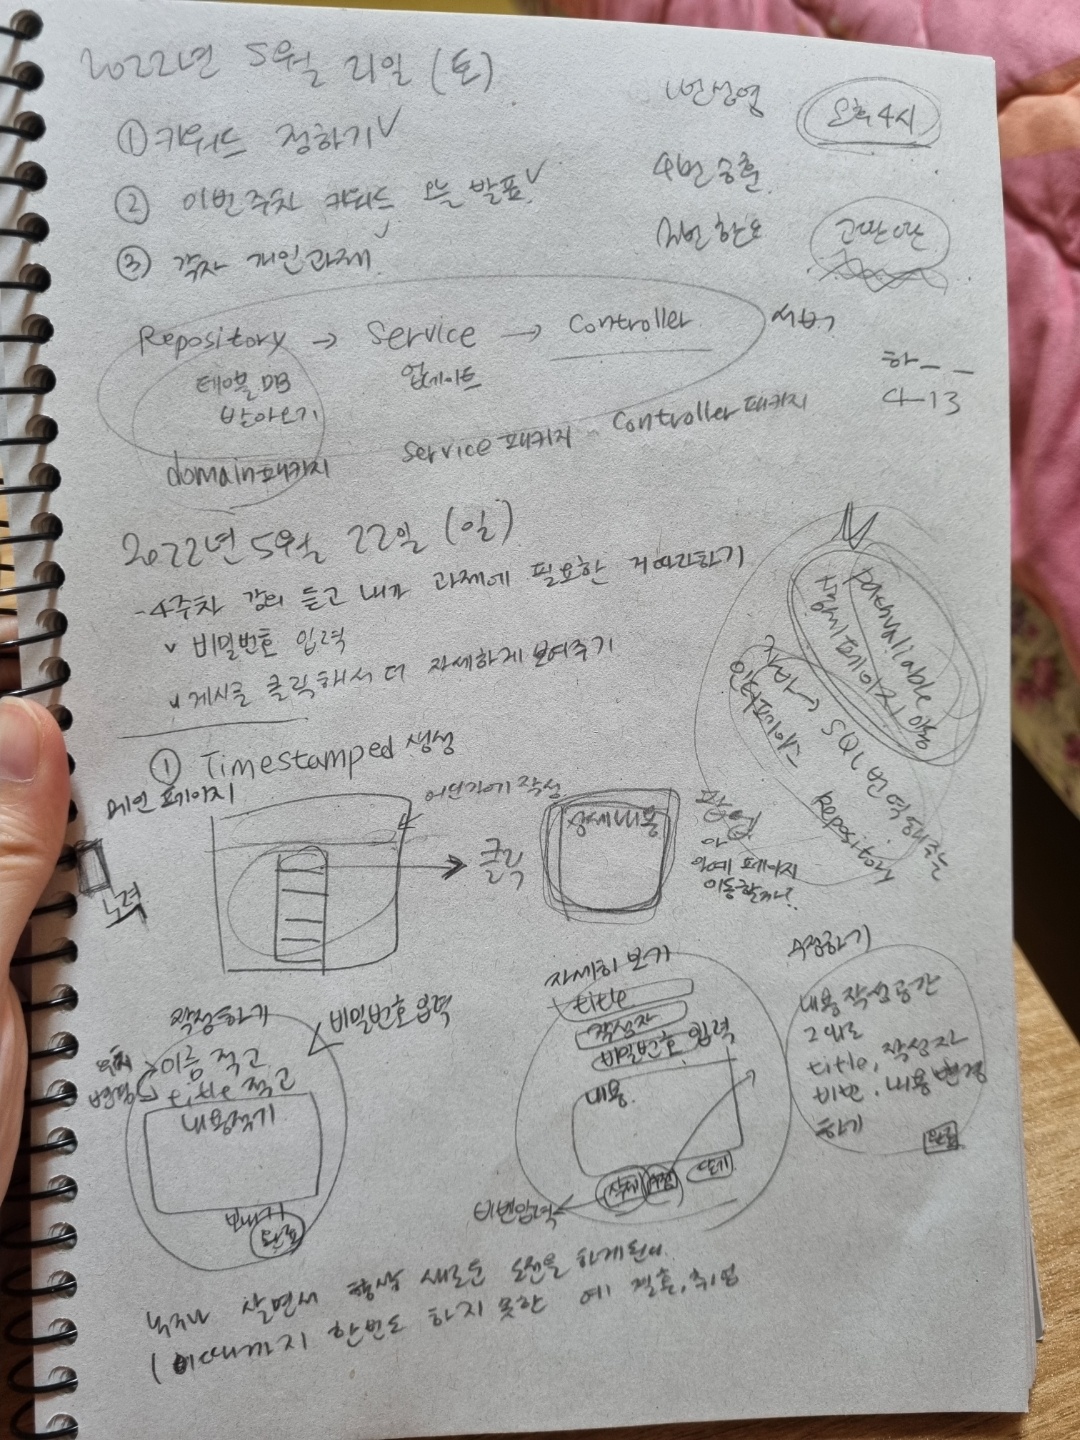 2022년 5월 21일 (토)
① 키워드 정하기 ✓
② 이번주차 키워드 오늘 발표 ✓
③ 각자 개인과제
1번성영
4번승훈
2번한오
오후4시
고딴아딴
Repository → Service → Controller 서버
테이블DB
받아오기
업데이트
하_ _
4-13
domain패키지 Service패키지 Controller패키지
2022년 5월 22일 (일)
- 4주차 강의 듣고 내가 과제에 필요한 거 따라하기
v 비밀번호 입력
v 게시글 클릭해서 더 자세하게 보여주기
① Timestamped 생성
Pathvaliable 이용
상세페이지
자바 → SQL 번역해주는
인터페이스
Repository
메인 페이지
어딘가에 작성
클릭
상세내용
팝업
아예 페이지
이동할까?
노력
작성하기
비밀번호 입력
위치
변경
이름 적고
title 적고
내용적기
보내기
완료
자세히 보기
title
작성자
비밀번호 입력
내용
삭제 수정 닫기
비번입력
수정하기
내용작성공간
그대로
title, 작성자
비번, 내용 변경
하기
완료
누구나 살면서 항상 새로운 도전을 하게된다.
(이때까지 한번도 하지 못한 예 결혼, 취업